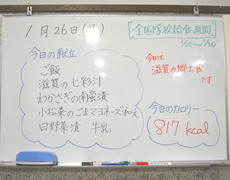 1月26日(月)
全国学校給食週間
1/24〜1/30
今日の献立
ご飯
滋賀の七彩汁
わかさぎの南蛮漬
小松菜のごまマヨネーズ和え
日野菜漬 牛乳
今日は
滋賀の郷土食
です
今日のカロリー
817 kcal